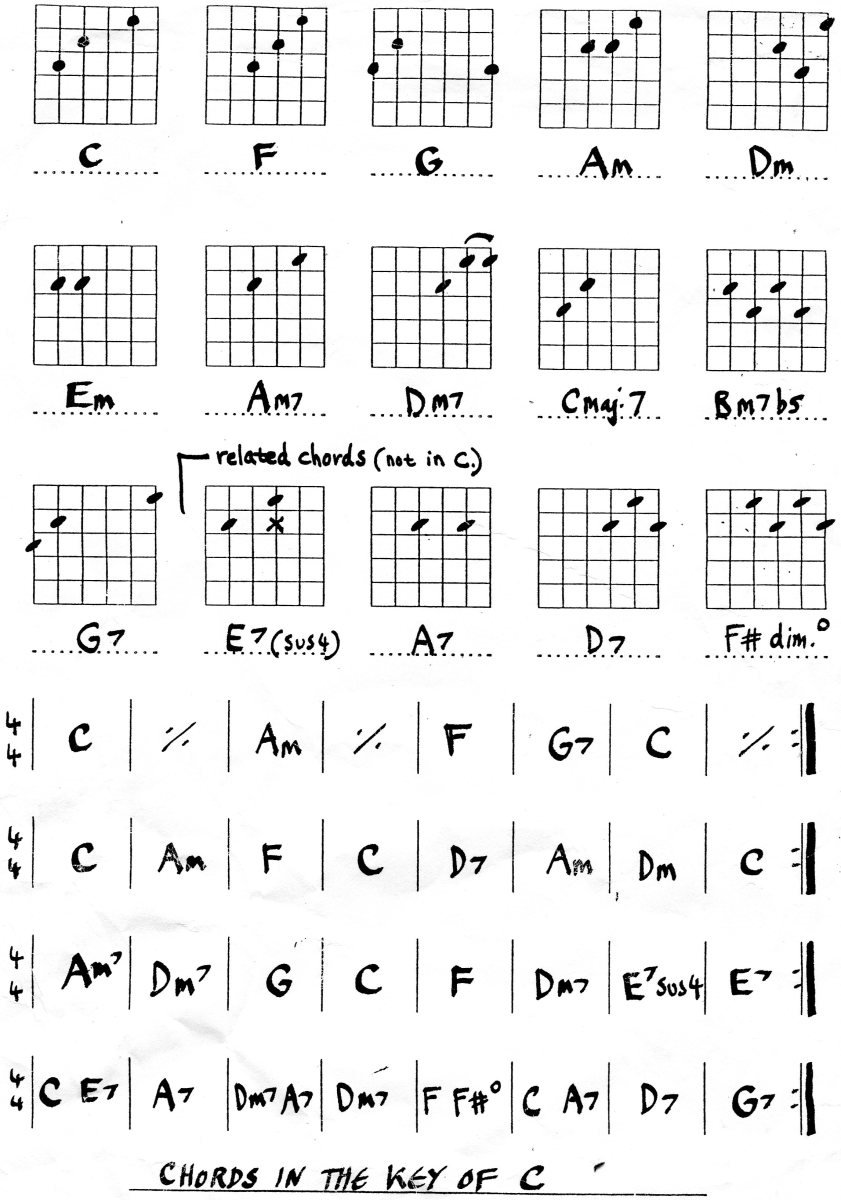 C F G Am Dm
Em Am7 Dm7 Cmaj.7 Bm7b5
related chords (not in C.)
G7 E7(sus4) A7 D7 F# dim.°
4/4 | C | ٪ | Am | ٪ | F | G7 | C | ٪ :|
4/4 | C | Am | F | C | D7 | Am | Dm | C :|
4/4 | Am7 | Dm7 | G | C | F | Dm7 | E7sus4 | E7 :|
4/4 | C E7 | A7 | Dm7 A7 | Dm7 | F F#° | C A7 | D7 | G7 :|
CHORDS IN THE KEY OF C